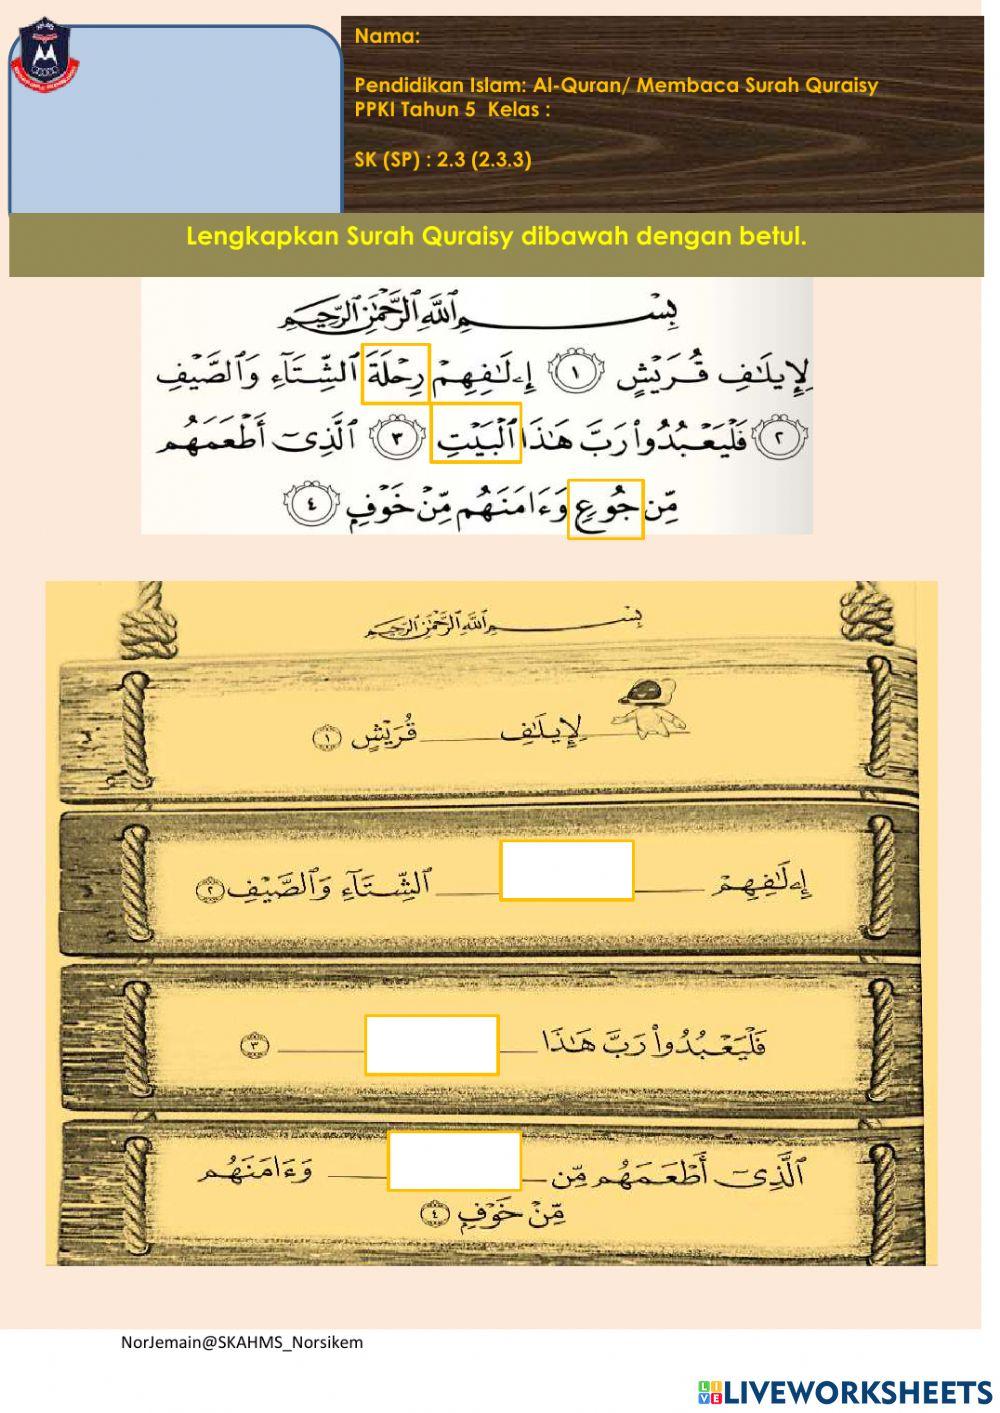 Nama:
Pendidikan Islam: Al-Quran/ Membaca Surah Quraisy
PPKI Tahun 5  Kelas :
SK (SP) : 2.3 (2.3.3)
Lengkapkan Surah Quraisy dibawah dengan betul.
بِسْمِ ٱللَّهِ ٱلرَّحْمَٰنِ ٱلرَّحِيمِ
لِإِيلَٰفِ قُرَيْشٍ ١ إِۦلَٰفِهِمْ رِحْلَةَ ٱلشِّتَآءِ وَٱلصَّيْفِ
٢ فَلْيَعْبُدُوا۟ رَبَّ هَٰذَا ٱلْبَيْتِ ٣ ٱلَّذِىٓ أَطْعَمَهُم
مِّن جُوعٍ وَءَامَنَهُم مِّنْ خَوْفٍۭ ٤
بِسْمِ ٱللَّهِ ٱلرَّحْمَٰنِ ٱلرَّحِيمِ
لِإِيلَٰفِ ______ قُرَيْشٍ ١
إِۦلَٰفِهِمْ ______ ٱلشِّتَآءِ وَٱلصَّيْفِ ٢
فَلْيَعْبُدُوا۟ رَبَّ هَٰذَا ______ ٣
ٱلَّذِىٓ أَطْعَمَهُم مِّن ______ وَءَامَنَهُم
مِّنْ خَوْفٍۭ ٤
NorJemain@SKAHMS_Norsikem
LIVEWORKSHEETS